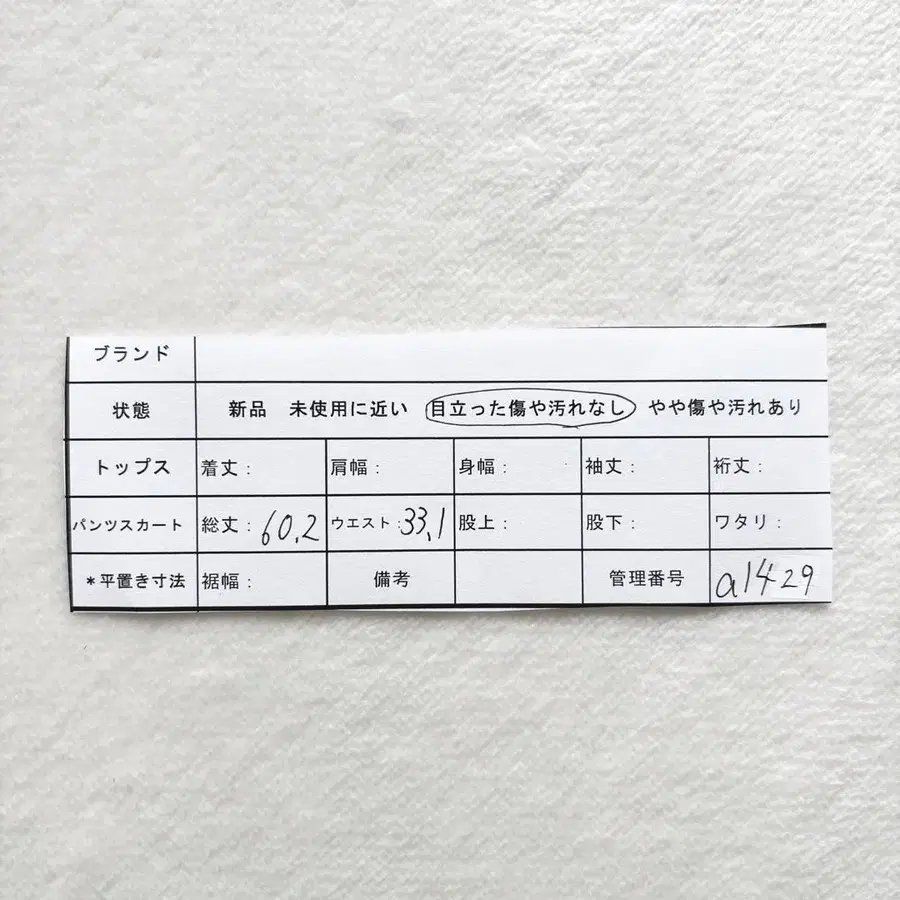 ブランド
状態 新品 未使用に近い 目立った傷や汚れなし やや傷や汚れあり
トップス 着丈: 肩幅: 身幅: 袖丈: 裄丈:
パンツスカート 総丈:60.2 ウエスト:33.1 股上: 股下: ワタリ:
*平置き寸法 裾幅: 備考 管理番号 a1429